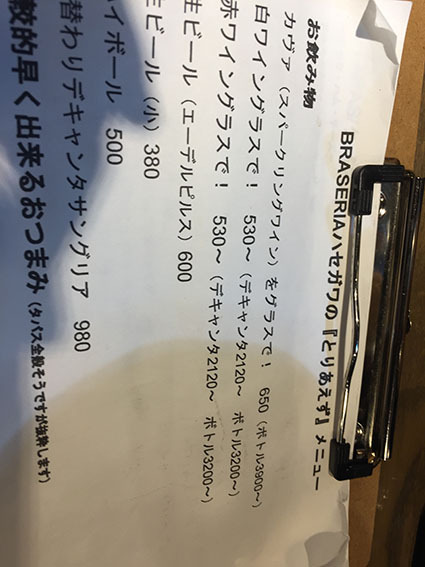 BRASERIAハセガワの『とりあえず』メニュー
お飲み物
カヴァ（スパークリングワイン）をグラスで！ 650（ボトル3900～）
白ワイングラスで！ 530～（デキャンタ2120～ ボトル3200～）
赤ワイングラスで！ 530～（デキャンタ2120～ ボトル3200～）
生ビール（エーデルピルス）600
生ビール（小）380
イボール 500
替わりデキャンタサングリア 980
較的早く出来るおつまみ（タパス全般そうですが抜粋します）